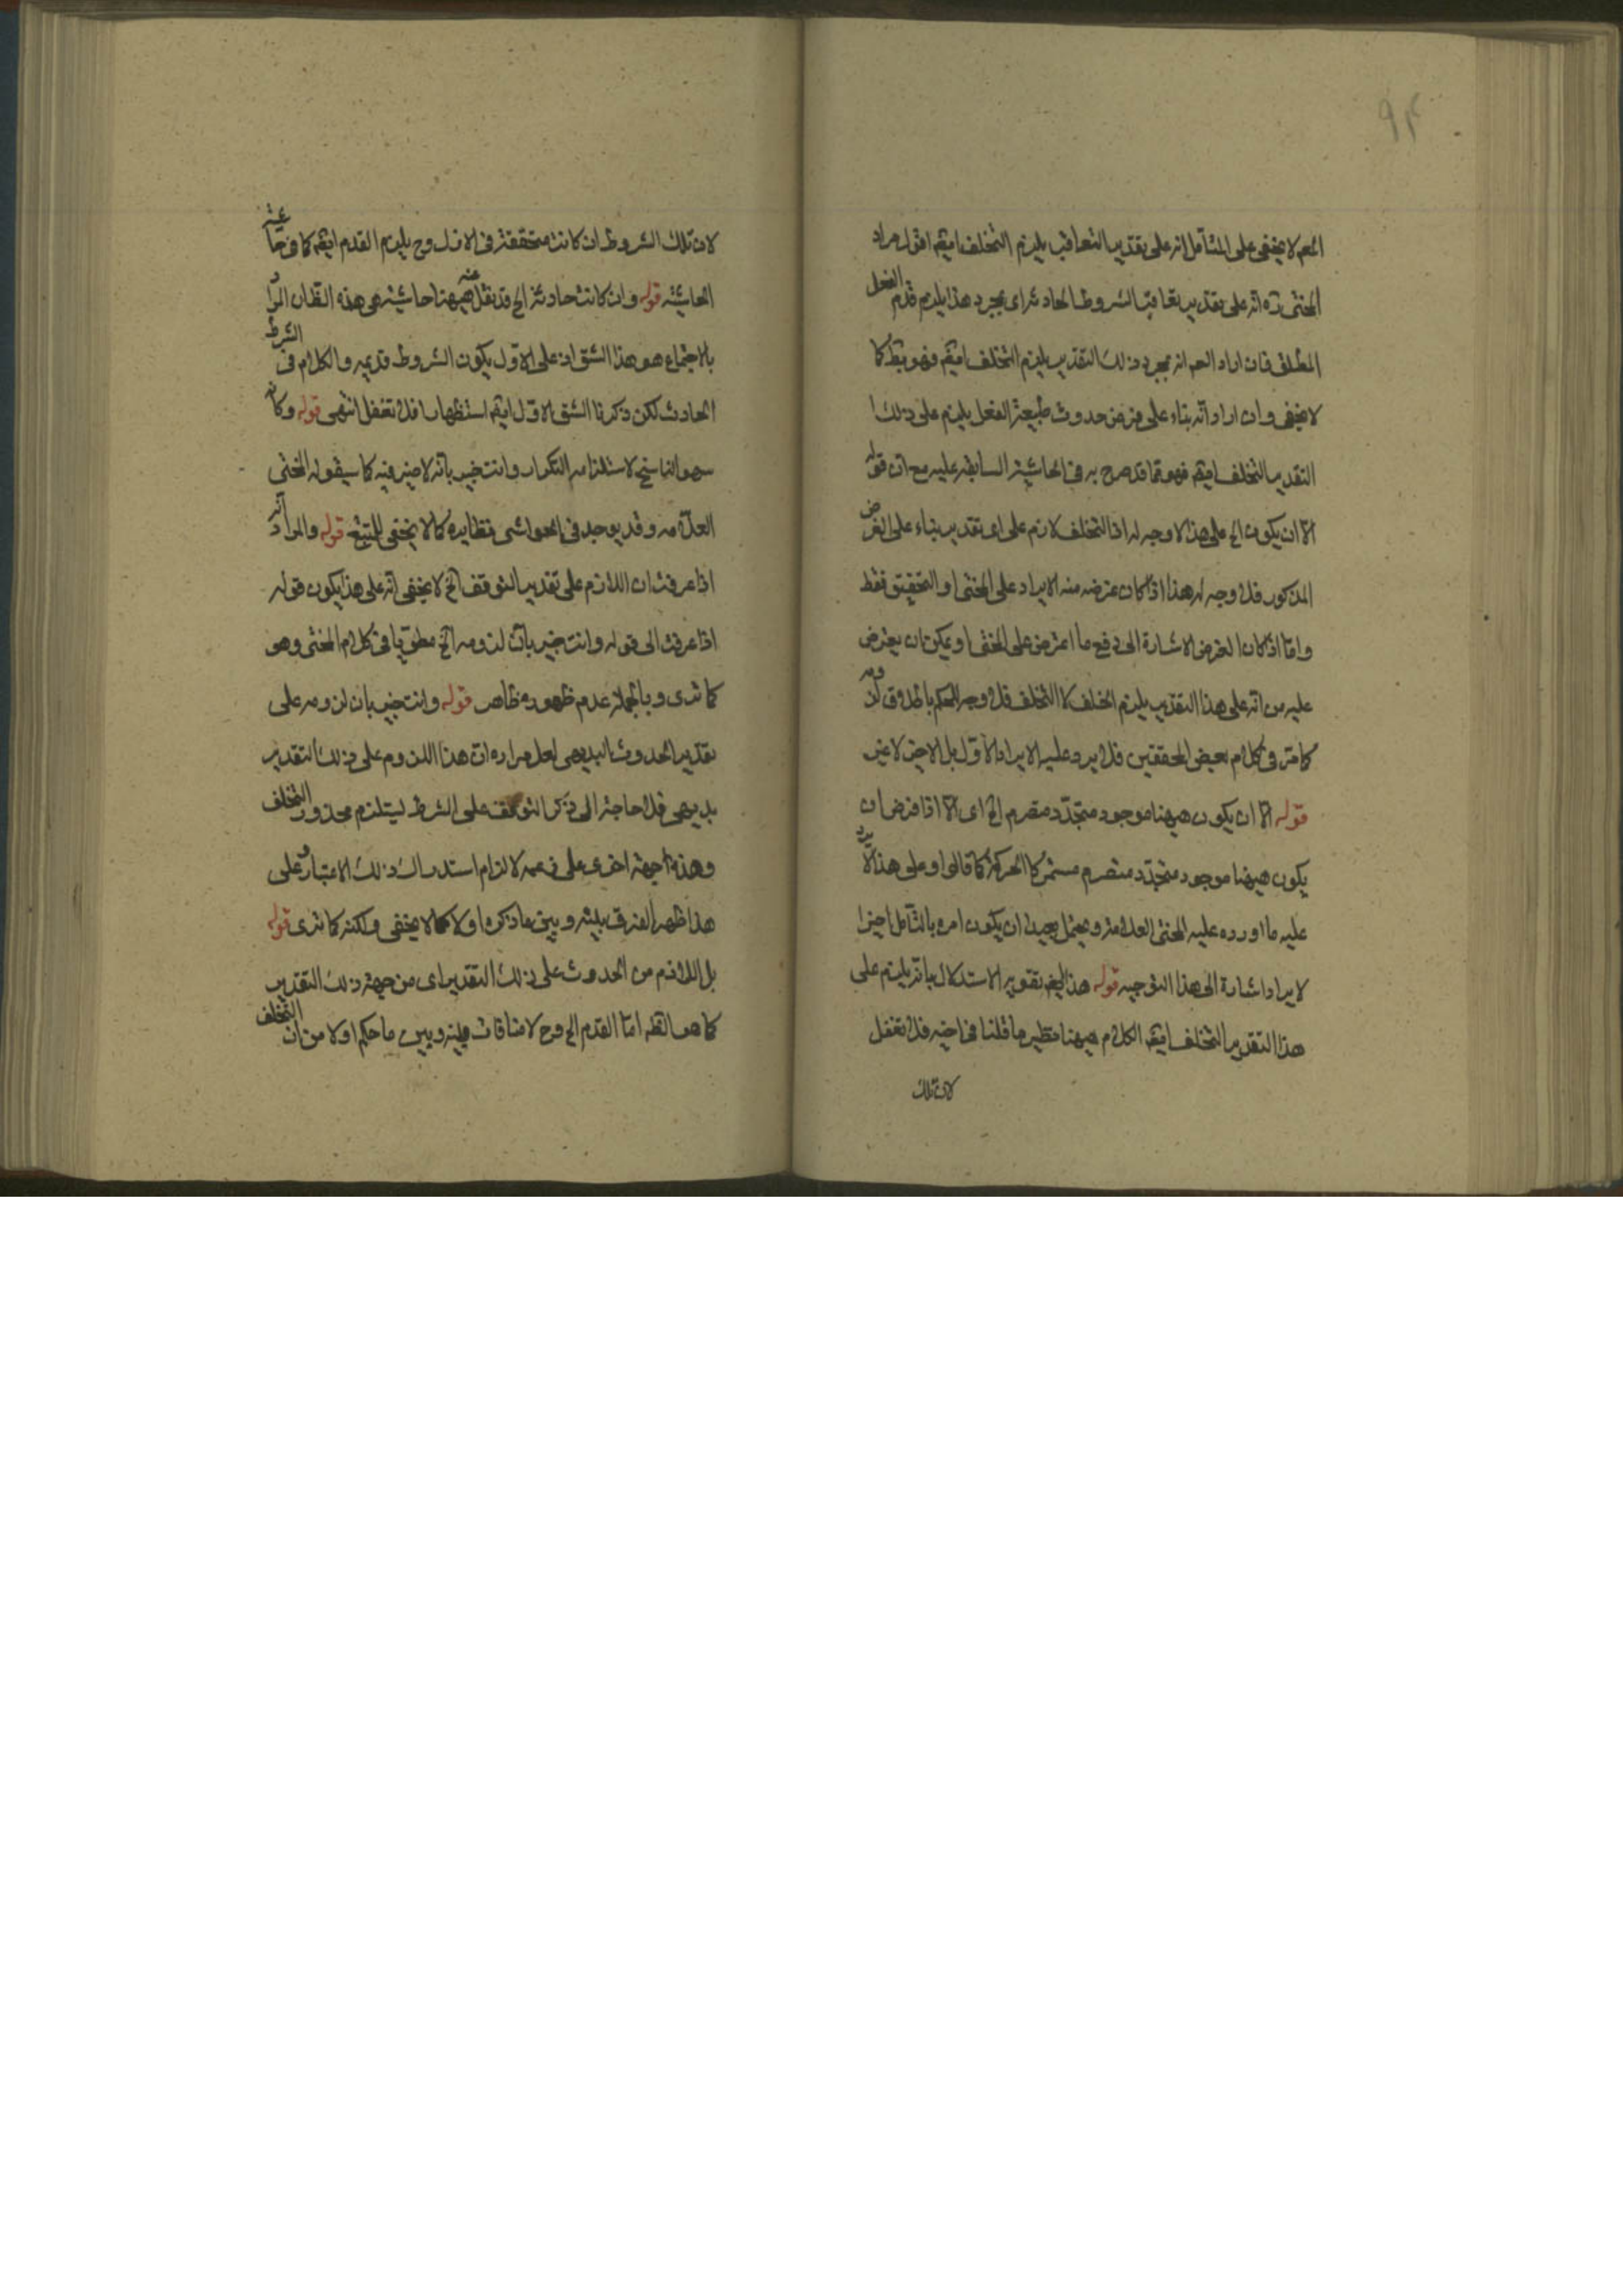 ٩٤
المعم لا يخفى على المتأمل انه على تقدير التعاقب يلزم التخلف ايضم اقول مراد
المحشى ره انه على تقدير تعاقب الشروط الحادثة اى بمجرد هذا يلزم قدم الفعل
المطلق فان اراد المعم انه بمجرد ذلك التقدير يلزم التخلف ايضم فهو بط كما
لا يخفى وان اراد انه بناء على فرض حدوث طبيعة الفعل يلزم على ذلك
التقدير التخلف ايضم فهو مما قد صرح به فى الحاشية السابقة عليه مع ان قوله
الا ان يكون الخ على هذا لا وجه له اذ التخلف لازم على اى تقدير بناء على الفرض
المذكور فلا وجه له هذا اذا كان غرضه منه الايراد على المحشى او التحقيق فقط
واما اذا كان الغرض الاشارة الى دفع ما اعترض على المحشى او يمكن ان يعترض
عليه من انه على هذا التقدير يلزم الخلف كالتخلف فلا وجه للحكم باطلاق لزومه
كما مر فى كلام بعض المحققين فلا يرد عليه الايراد الاول بل الاخير لا غير
قوله الا ان يكون هيهنا موجود متجدد متصرم الخ اى الا اذا فرض ان
يكون هيهنا موجود متجدد متصرم مستمر كالحركة كما قالوا وعلى هذا لا يرد
عليه ما اورده عليه المحشى العلامة ويحتمل بعيدا ان يكون امره بالتأمل اخيرا
لايراد اشارة الى هذا التوجيه قوله هذا ايضم تقوير الاستدلال بانه يلزم على
هذا التقدير التخلف ايضم الكلام هيهنا نظير ما قلنا فى اخيه فلا تغفل
لان تلك
لان تلك الشروط ان كانت متحققة فى الازل وح يلزم القدم ايضم كما فى حاشية
الحاشية قوله وان كانت حادثة الخ قد نقل عنه هيهنا حاشية هى هذه الظ ان المراد
بالاجتماع هو هذا الشق اذ على الاول يكون الشروط قديمه والكلام فى الشرط
الحادث لكن ذكرنا الشق الاول ايضم استظهارا فلا تغفل انتهى قوله وكانه
سهو الناسخ لاستلزامه التكرار وانت خبير بانه لا ضير فيه كما سيقوله المحشى
العلامه وقد يوجد فى الحواشى نظايره كما لا يخفى للمتتبع قوله والمراد انه
اذا عرفت ان اللازم على تقدير التوقف الخ لا يخفى انه على هذا يكون قوله
اذا عرفت الى قوله وانت خبير بان لزومه الخ مطويا فى كلام المحشى وهو
كما ترى وبالجملة عدم ظهوره ظاهر قوله وانت خبير بان لزومه على
تقدير الحدوث البديهى لعل مراده ان هذا اللزوم على ذلك التقدير
بديهى فلا حاجة الى ذكر التوقف على الشرط ليستلزم محذور التخلف
وهذه جهة اخرى على زعمه لالزام استدراك ذلك الاعتبار وعلى
هذا ظهر الفرق بينه وبين ما ذكره اولا كما لا يخفى ولكنه كما ترى قوله
بل اللازم من الحدوث على ذلك التقدير اى من جهة ذلك التقدير
كما هو الظم اما القدم الخ وح لا منافات بينه وبين ما حكم اولا من ان التخلف